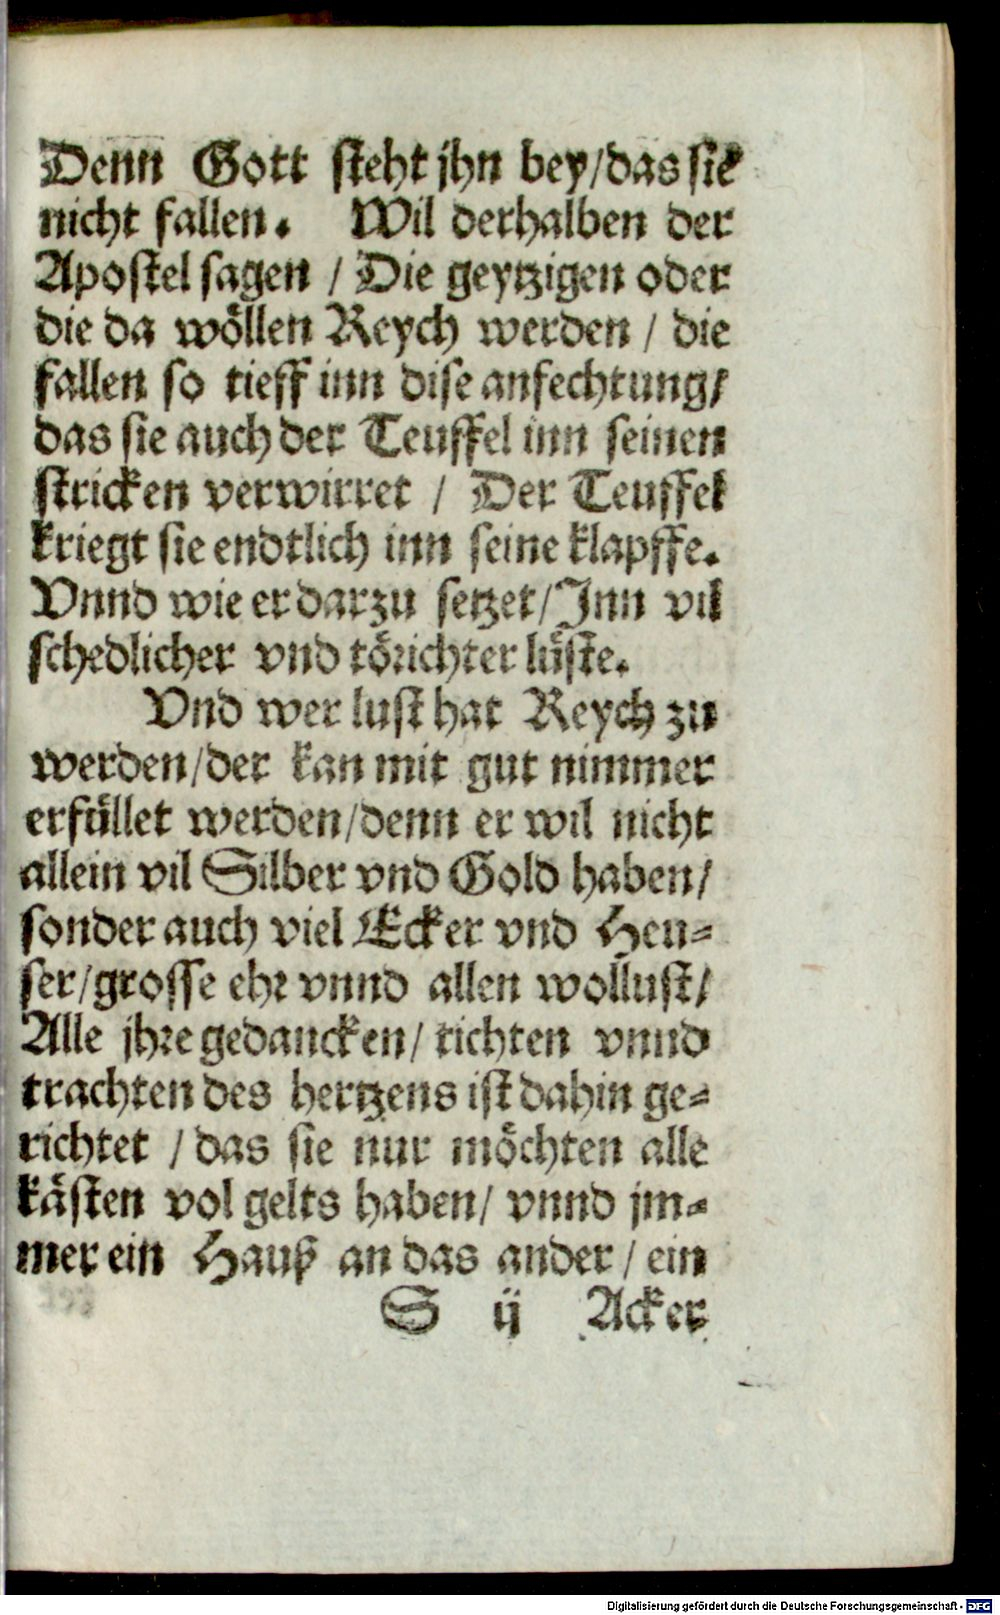 Denn Gott steht jhn bey/das sie
nicht fallen. Wil derhalben der
Apostel sagen / Die geytzigen oder
die da wöllen Reych werden / die
fallen so tieff inn dise anfechtung/
das sie auch der Teuffel inn seinen
stricken verwirret / Der Teuffel
kriegt sie endtlich inn seine klapffe.
Vnnd wie er darzu setzet/Inn vil
schedlicher vnd törichter lüste.
Vnd wer lust hat Reych zu
werden/der kan mit gut nimmer
erfüllet werden/denn er wil nicht
allein vil Silber vnd Gold haben/
sonder auch viel Ecker vnd Heu-
ser/grosse ehr vnnd allen wollust/
Alle jhre gedancken/ tichten vnnd
trachten des hertzens ist dahin ge-
richtet / das sie nur möchten alle
kästen vol gelts haben/ vnnd jm-
mer ein Hauß an das ander / ein
S ij Acker
Digitalisierung gefördert durch die Deutsche Forschungsgemeinschaft - DFG